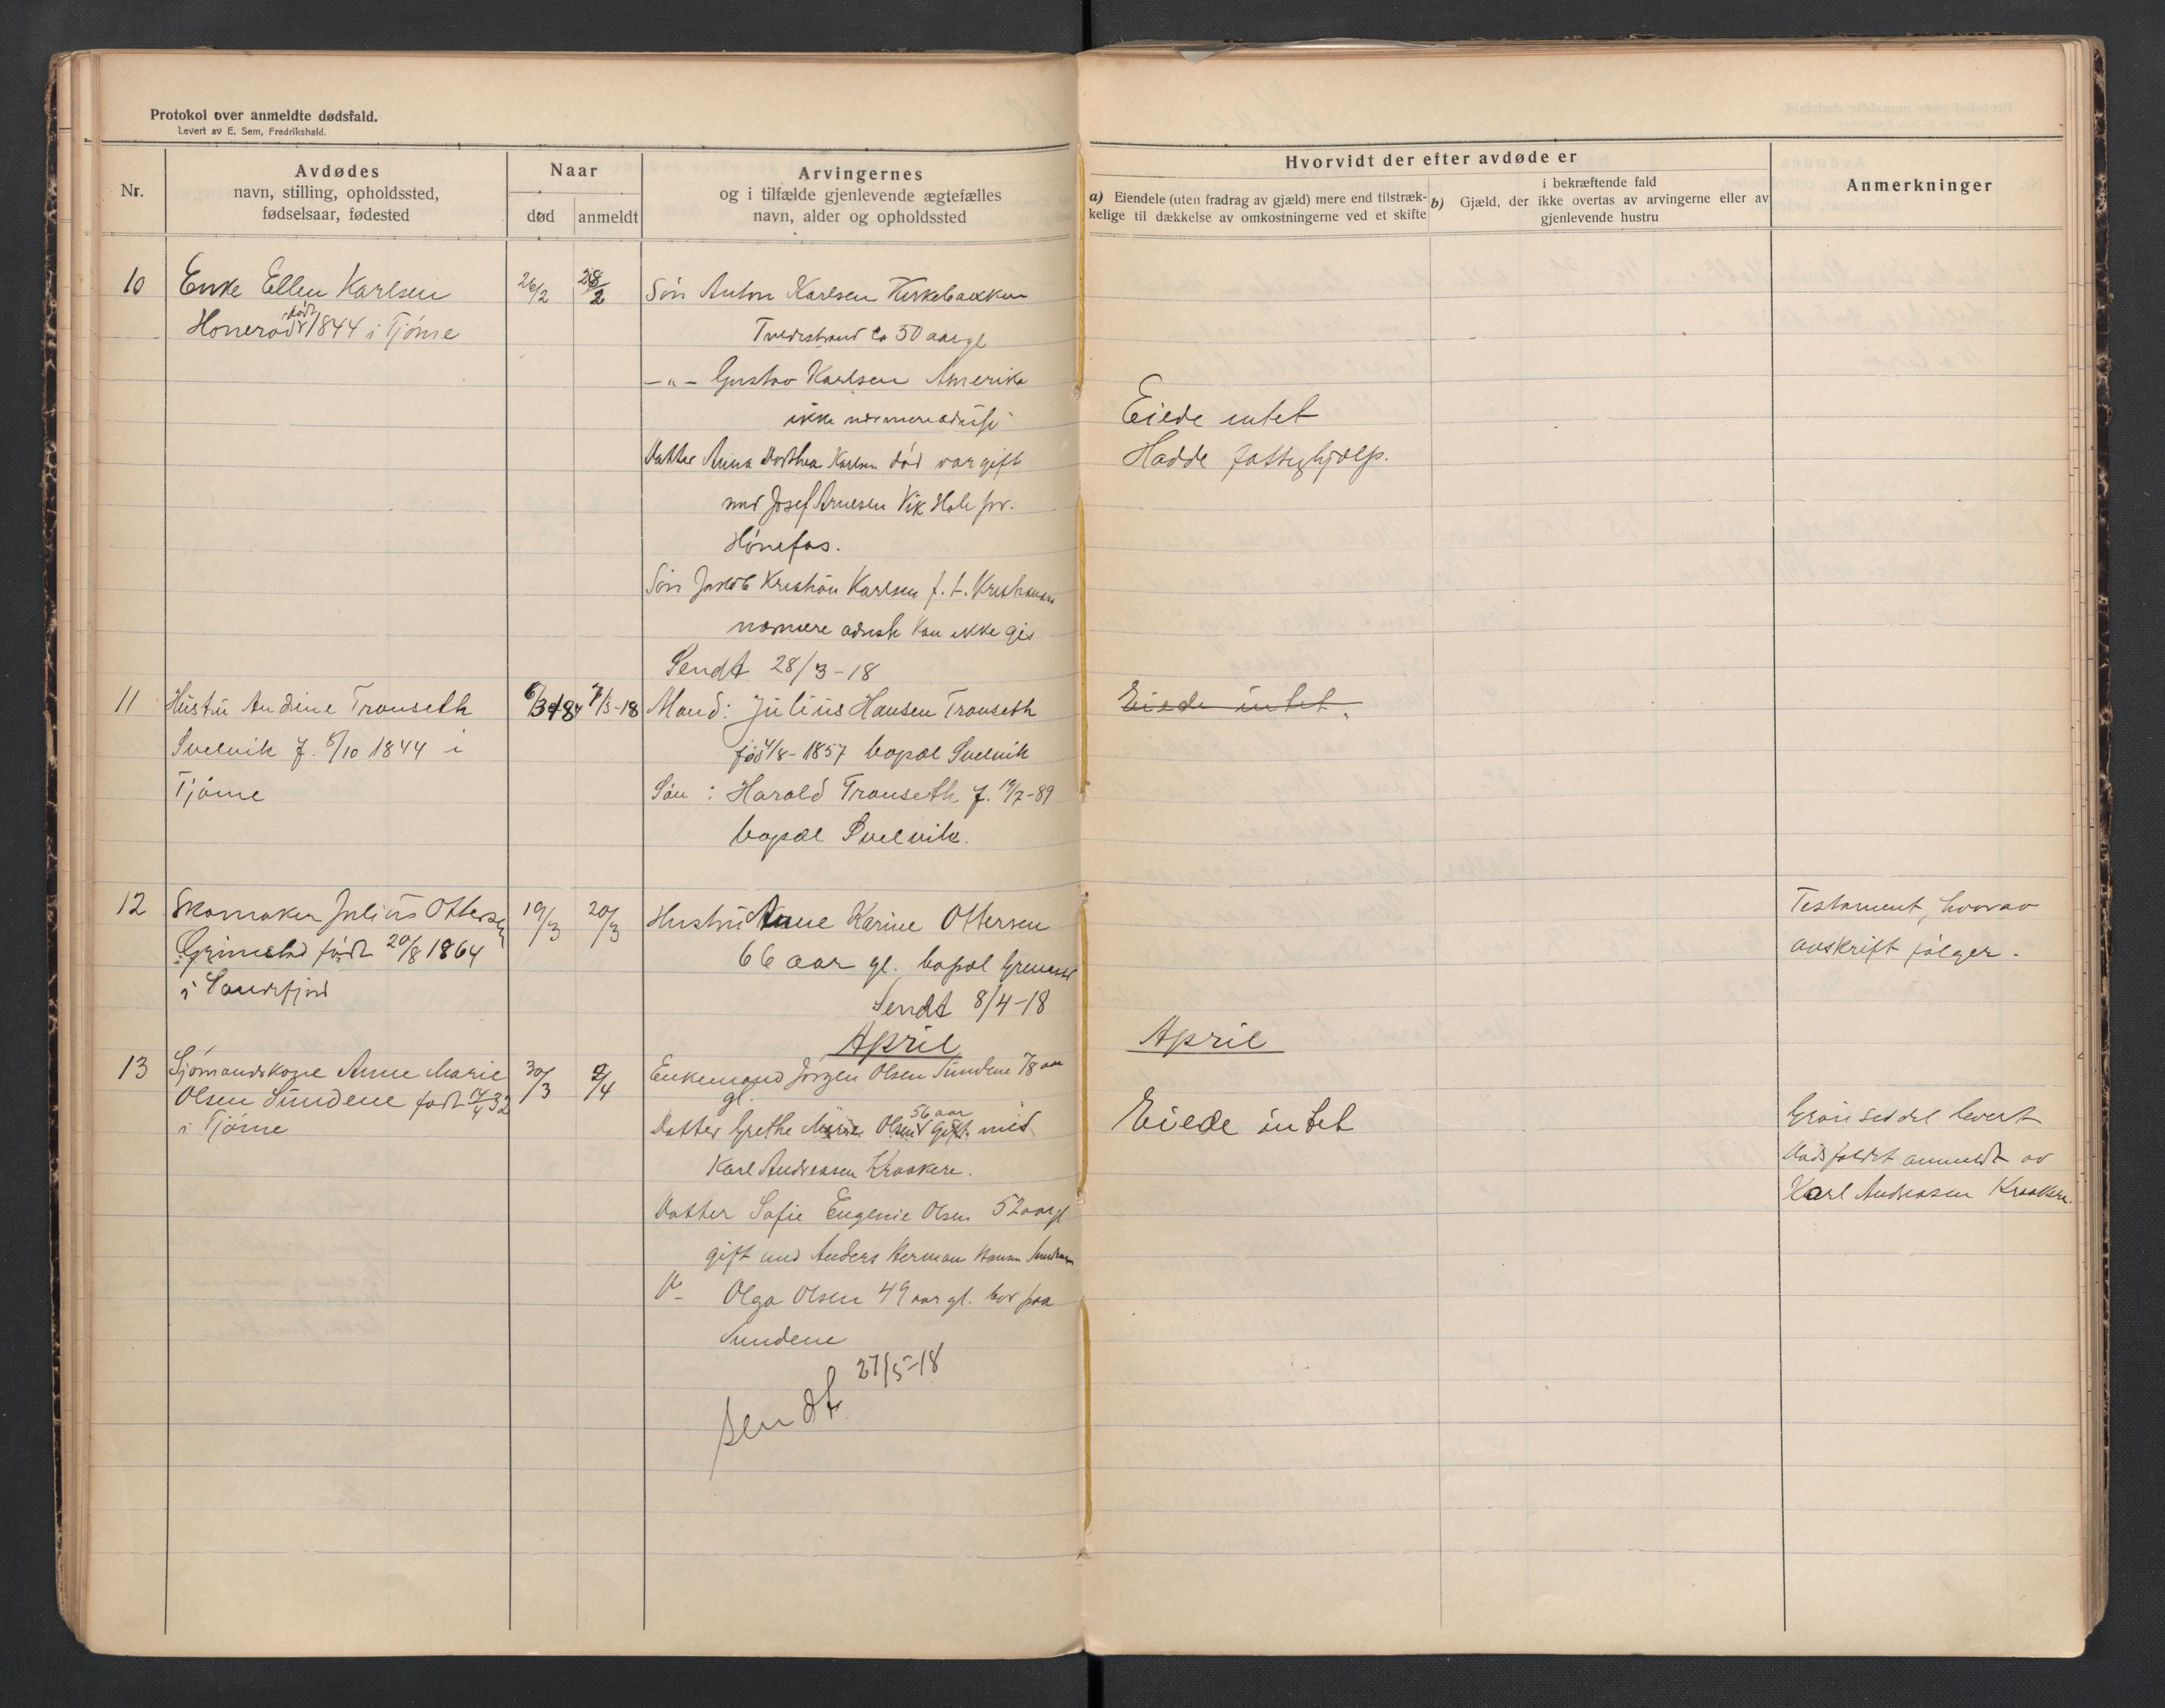 Protokol over anmeldte dødsfald.
Levert av E. Sem, Fredrikshald.
Nr.
Avdødes
navn, stilling, opholdssted,
fødselsaar, fødested
Naar
død
anmeldt
Arvingernes
og i tilfælde gjenlevende ægtefælles
navn, alder og opholdssted
Hvorvidt der efter avdøde er
a) Eiendele (uten fradrag av gjæld) mere end tilstræk-
kelige til dækkelse av omkostningerne ved et skifte
i bekræftende fald
b) Gjæld, der ikke overtas av arvingerne eller av
gjenlevende hustru
Anmerkninger
10
Enke Ellen Karlsen
Honerød født 1844 i Tjöme
26/2
28/2
Søn Anton Karlsen Kirkebakken
Tvedestrand ca 50 aar gl
-"- Gustav Karlsen Amerika
ikke nærmere adresse
Datter Anna Dorthea Karlsen død var gift
med Josef Arnesen Vik Hole pr.
Hönefos.
Søn Jakob Kristian Karlsen f. t.
nærmere adresse kan ikke gis
Sendt 28/3-18
Eiede intet
Hadde fattighjælp.
11
Hustru Andine Transeth
Svelvik f. 6/10 1844 i
Tjöme
7/3-18
Mand: Julius Hansen Transeth
fød 4/8-1857 bopæl Svelvik
Søn: Harald Transeth f. 19/7-89
bopæl Svelvik.
Eiede intet.
12
Skomaker Julius Ottersen
Grimestad født 20/8 1864
i Sandefjord
19/3
20/3
Hustru Anne Karine Ottersen
66 aar gl. bopæl
Sendt 8/4-18
Testament, hvorav
avskrift følger.
April
April
13
Sjömandskone Anne Marie
Olsen Sundene født 14/4 32
i Tjöme
30/3
2/4
Enkemand Jörgen Olsen Sundene 78 aar
gl.
Datter Grethe Marie Olsen 56 aar gift med
Karl Andreasen Kraakere.
Datter Sofie Eugenie Olsen 52 aar gl
gift med Anders Herman Hansen
D- Olga Olsen 49 aar gl. bor paa
Sundene
sendt 27/5-18
Eiede intet
Grön seddel levert
Dødsfaldet anmeldt av
Karl Andreasen Kraakere.